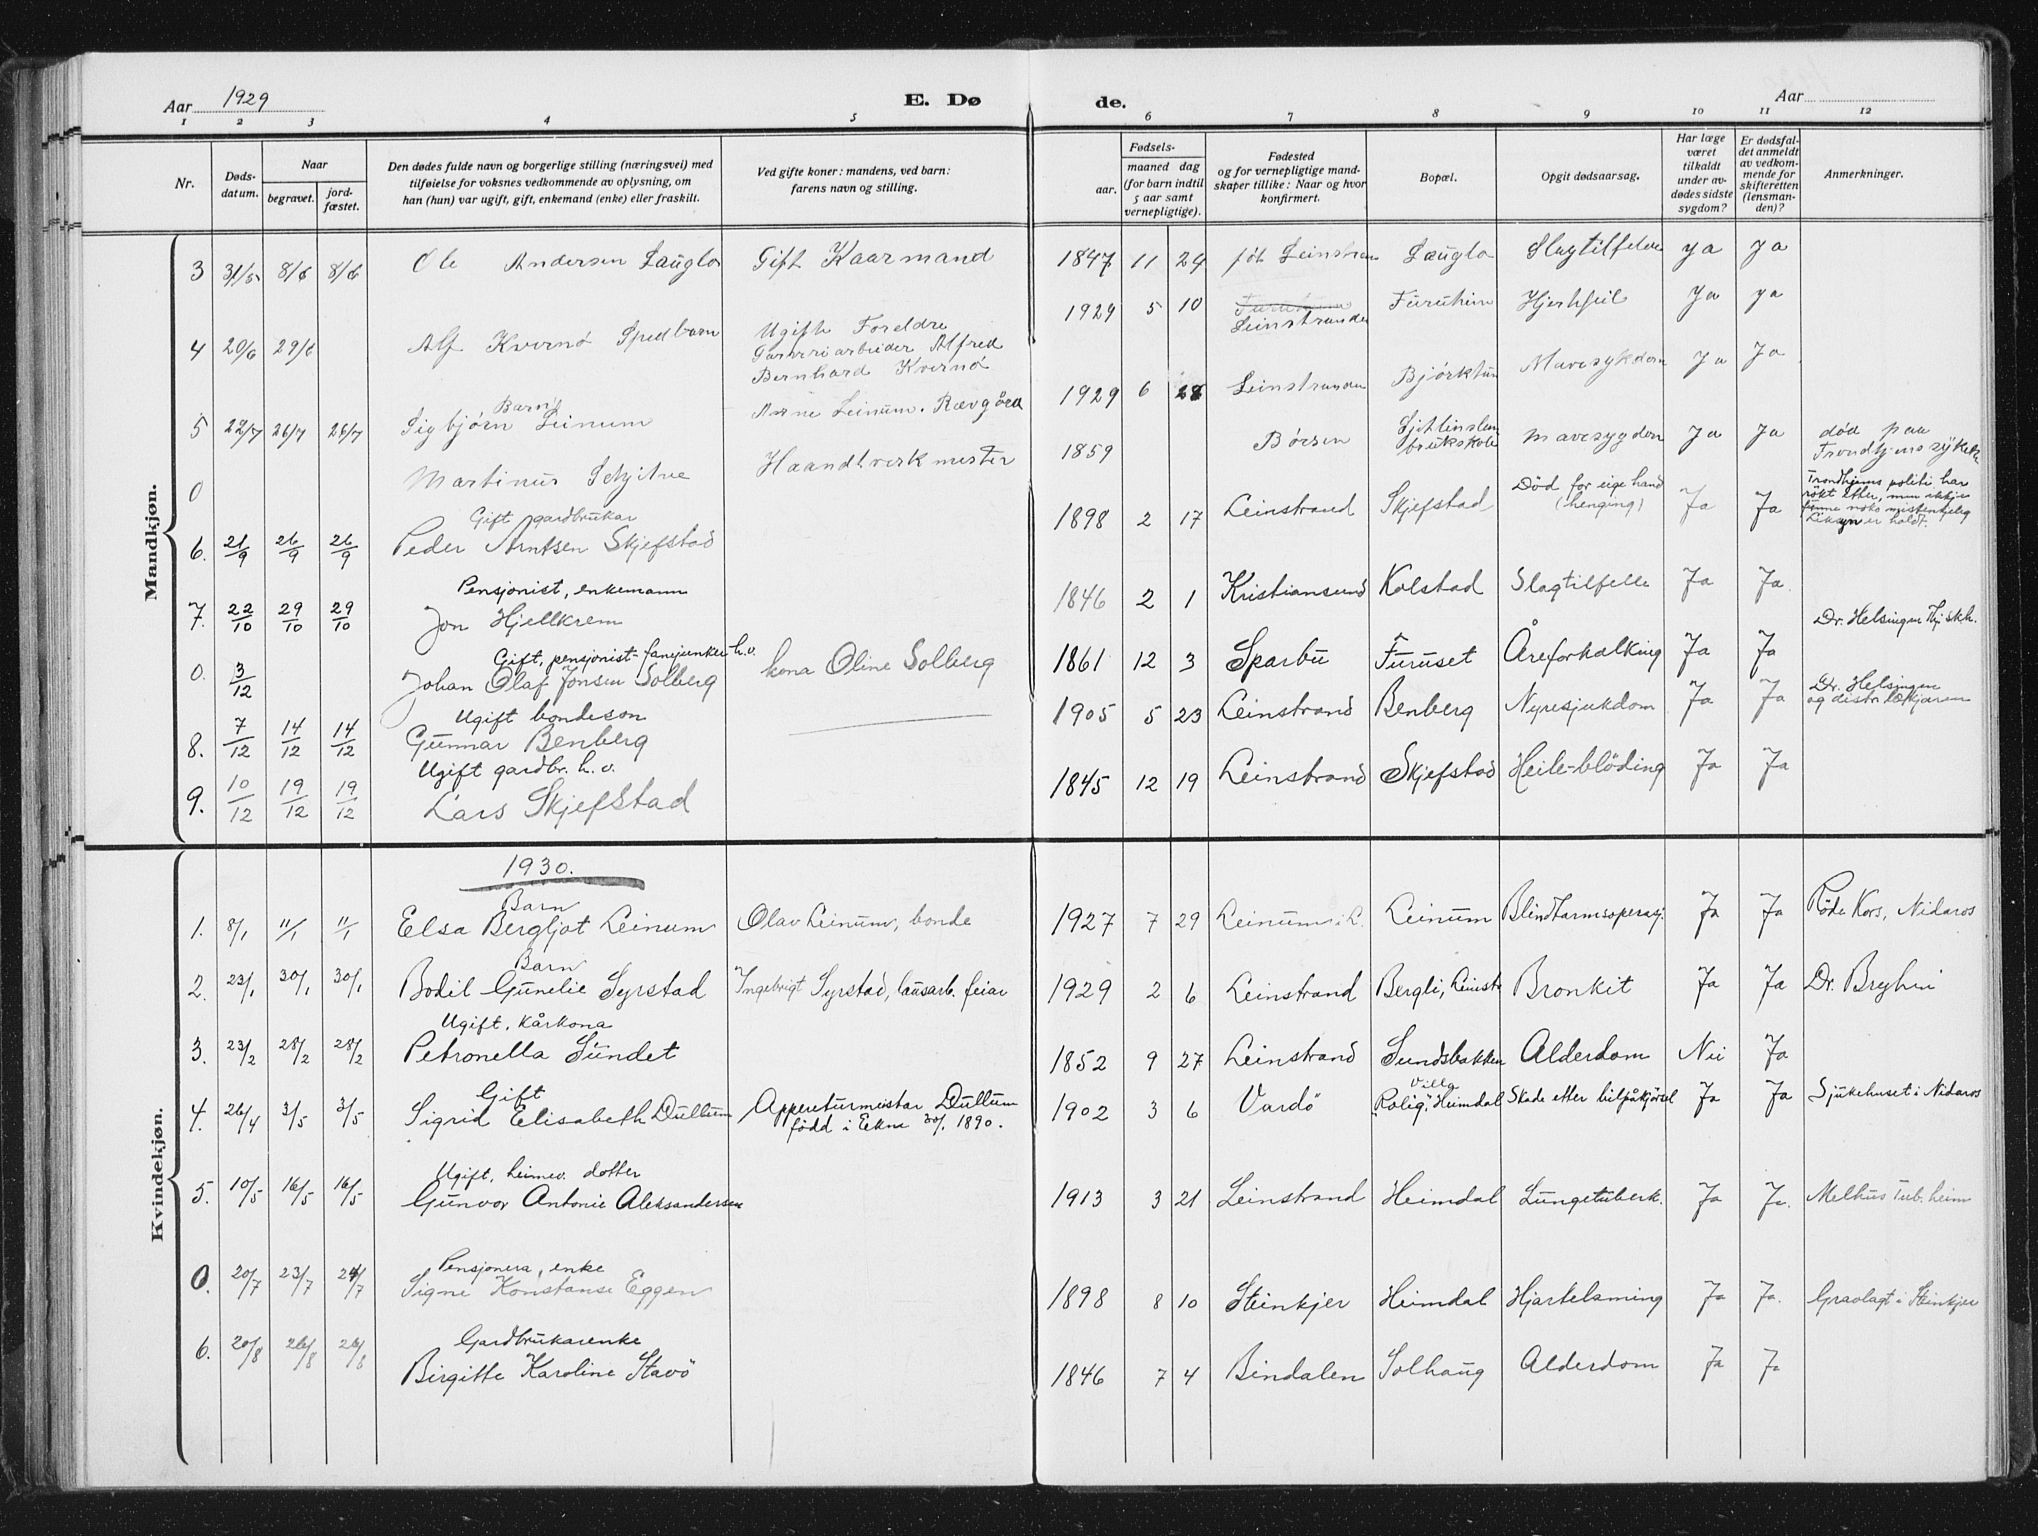 Aar 1929
E. Dø
de.
Aar
1 2 3 4 5 6 7 8 9 10 11 12
Nr.
Døds-
datum.
Naar
begravet.
jord-
fæstet.
Den dødes fulde navn og borgerlige stilling (næringsvei) med
tilføielse for voksnes vedkommende av oplysning, om
han (hun) var ugift, gift, enkemand (enke) eller fraskilt.
Ved gifte koner: mandens, ved barn:
farens navn og stilling.
Fødsels-
aar.
maaned dag
(for barn indtil
5 aar samt
vernepligtige).
Fødested
og for vernepligtige mand-
skaper tillike: Naar og hvor
konfirmert.
Bopæl.
Opgit dødsaarsag.
Har læge
været
tilkaldt
under av-
dødes sidste
sygdom?
Er dødsfal-
det anmeldt
av vedkom-
mende for
skifteretten
(lensman-
den)?
Anmerkninger.
Mandkjøn.
3 31/5 8/6 8/6 Ole Andersen Lauglo Gift Kaarmand 1847 11 24 Leinstran Lauglo Slagtilfelde ya ja
4 20/6 29/6 Alf Kvernø Spedbarn Ugifte Foreldre
Garveriarbeider Alfred
Bernhard Kvernø
1929 5 10 Leinstranden Furuheim Hjerhfeil ja ya
5 22/7 26/7 26/7 Barn
Sigbjørn Leinum Arne Leinum. Rævgård 1929 6 28 Leinstranden Bjørktun Mavesykdom ja ja
0 Martinus Schjitve Haandtverkmester 1859 Børsen mavesygdom ja ja død paa
Trondhjems sykeh.
6. 21/9 26/9 26/9 Gift gardbrukar
Peder Arntsen Skjefstad 1898 2 17 Leinstrand Skjefstad Død for eige hand
(henging) Ja Ja
Trondhjems politi har
røkt etter, men ikkje
funne noko mistenkjeleg
Liksyn er haldt.
7. 22/10 29/10 29/10 Pensjonist, enkemann
Jon Hjellkrem 1846 2 1 Kristiansund Kolstad Slagtilfelle Ja Ja.
0. 3/12 Gift, pensjonist-fanejunker h.v.
Johan Olaf Jonsen Solberg kona Oline Solberg 1861 12 3 Sparbu Furuset Åreforkalking Ja Ja Dr. Helsingen
8. 7/12 14/12 14/12 Ugift bondeson
Gunnar Benberg 1905 5 23 Leinstrand Benberg Nyresjukdom Ja Ja Dr. Helsingen
og distr. lækjaren
9. 10/12 19/12 19/12 Ugift gardbr. h.v.
Lars Skjefstad 1845 12 19 Leinstrand Skjefstad Heile-blöding Ja Ja
Kvindekjøn.
1930.
1. 8/1 11/1 11/1 Barn
Elsa Bergljot Leinum Olav Leinum, bonde 1927 7 29 Leinum i L. Leinum Blindtarmsoperasj. Ja Ja Röde Kors, Nidaros
2. 23/1 30/1 30/1 Barn
Bodil Gunelie Syrstad Ingebrigt Syrstad, lausarb. feiar 1929 2 6 Leinstrand Bergli, Leinstr Bronkit Ja Ja Dr. Bryhni
3. 23/2 28/2 28/2 Ugift, kårkona
Petronella Sundet 1852 9 27 Leinstrand Sundsbakken Alderdom Nei Ja
4. 26/4 3/5 3/5 Gift
Sigrid Elisabeth Dullum Appereturmeistar Dullum
född i Ekne 30/1. 1890.
1902 3 6 Vardö Villa
"Rolig", Heimdal Skade etter bilpåkjörsel Ja Ja Sjukehuset i Nidaros
5. 10/5 16/5 16/5 Ugift, heimev. dotter
Gunvor Antonie Aleksandersen 1913 3 21 Leinstrand Heimdal Lungetuberk. Ja Ja. Melhus Tub. heim
0. 20/7 23/7 24/7 Pensjonera, enke
Signe Konstanse Eggen 1898 8 10 Steinkjer Heimdal Hjartelaming Ja Ja. Gravlagt i Steinkjer
6. 20/8 26/8 26/8 Gardbrukarenke
Birgitte Karoline Stavö 1846 7 4 Bindalen Solhaug Alderdom Ja Ja